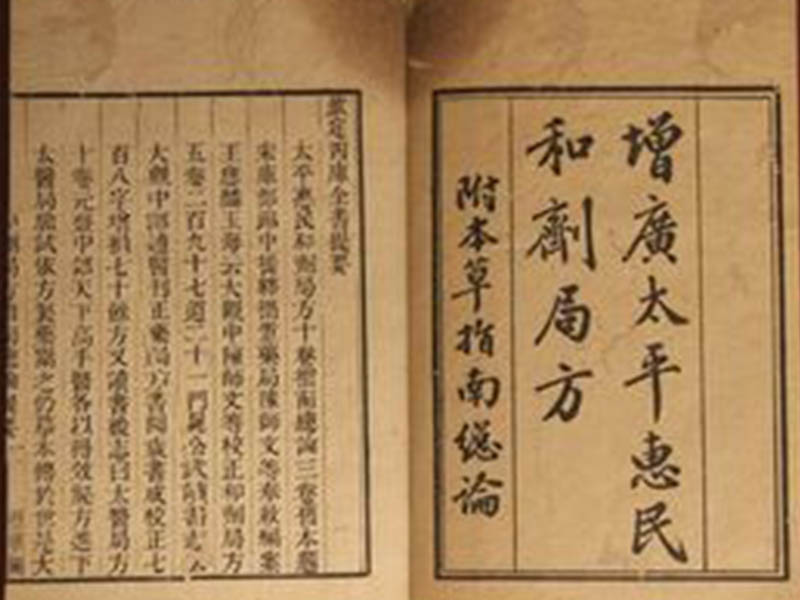 增廣太平惠民
和劑局方
附本草指南總論
欽定四庫全書提要
太平惠民和劑局方十卷指南總論三卷舊本題
宋庫部郎中提轄措置藥局陳師文等奉敕編案
王應麟玉海云大觀中陳師文等校正和劑局方
五卷二百九十七道二十一門晁公武讀書志云
大觀中詔通醫刊正藥局方書閱歲書成校正七
百八字增損七十餘方又讀書後志曰太醫局方
十卷元豐中詔天下高手醫各以得效秘方進下
太醫局驗試依方製藥鬻之仍摹本傳於世是大